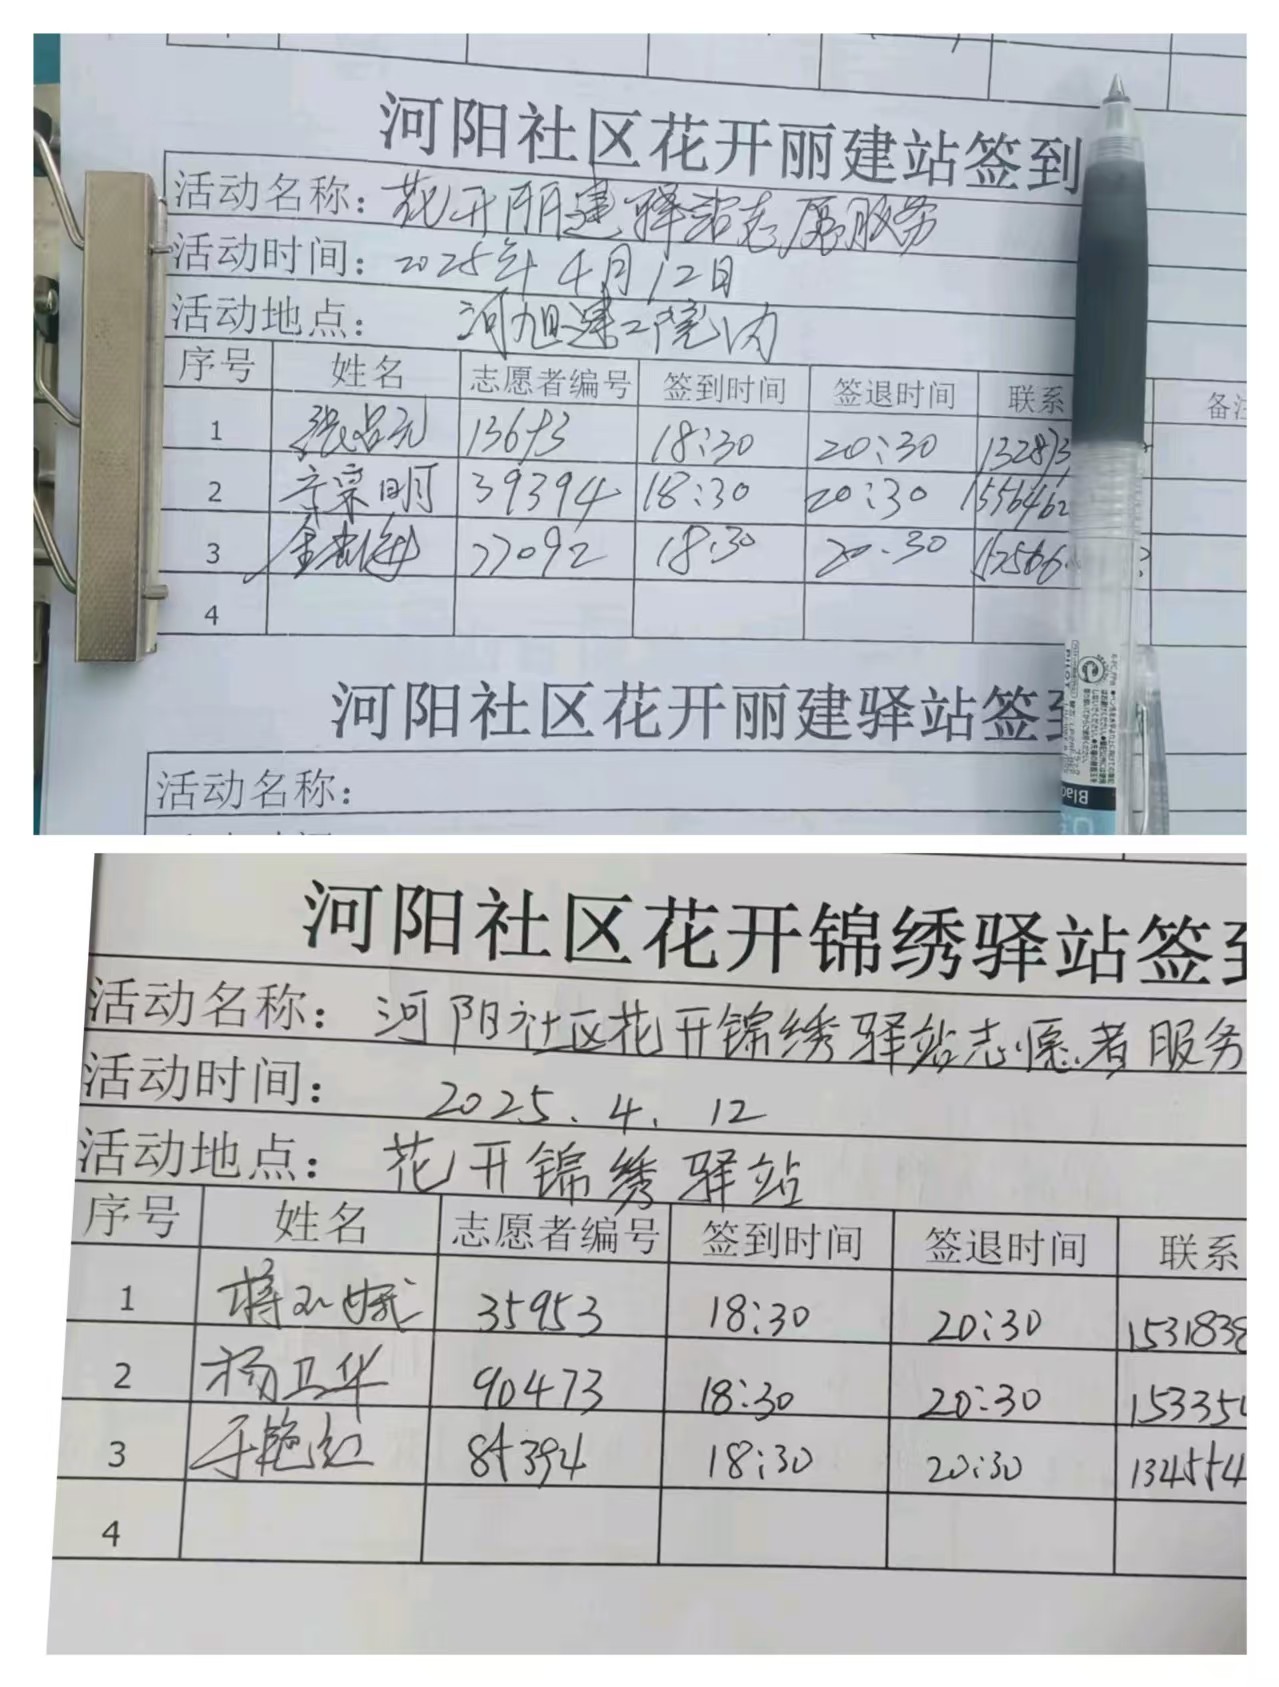 河阳社区花开丽建站签到
活动名称：花开丽建驿站志愿服务
活动时间：2025年4月12日
活动地点：河旭建工院内
序号 姓名 志愿者编号 签到时间 签退时间 联系 备注
1 张吕元 13653 18:30 20:30 132873
2 辛宗明 39394 18:30 20:30 1556462
3 77092 18:30 20:30 152566
4
河阳社区花开丽建驿站签到
活动名称：
Blac
河阳社区花开锦绣驿站签到
活动名称：河阳社区花开锦绣驿站志愿者服务
活动时间：2025.4.12
活动地点：花开锦绣驿站
序号 姓名 志愿者编号 签到时间 签退时间 联系
1 35953 18:30 20:30 1531838
2 杨卫华 90473 18:30 20:30 153354
3 于艳红 85394 18:30 20:30 1345554
4